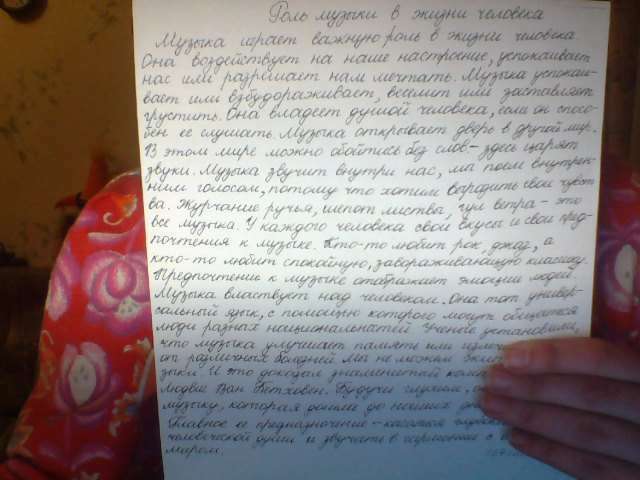 Роль музыки в жизни человека
Музыка играет важную роль в жизни человека.
Она воздействует на наше настроение, успокаивает
нас или разрешает нам мечтать. Музыка успокаи-
вает или взбудораживает, веселит или заставляет
грустить. Она владеет душой человека, если он спосо-
бен её слушать. Музыка открывает дверь в другой мир.
В этом мире можно обойтись без слов - здесь царят
звуки. Музыка звучит внутри нас, мы поем внутрен-
ним голосом, потому что хотим выразить свои чувст
ва. Журчание ручья, шепот листвы, гул ветра - это
все музыка. У каждого человека свои вкусы и свои пред-
почтения к музыке. Кто-то любит рок, джаз, а
кто-то любит спокойную, завораживающую классику.
Предпочтение к музыке отображает эмоции людей.
Музыка властвует над человеком. Она тот универ-
сальный язык, с помощью которого могут общаться
люди разных национальностей. Ученые установили,
что музыка улучшает память или
от различных болезней. Мы не можем
зыки. И это доказал знаменитый
Людвиг Ван Бетховен. Будучи глухим,
музыку, которая дошла до наших
Главное ее предназначение - касаться
человеческой души и звучать в гармонии с
миром.